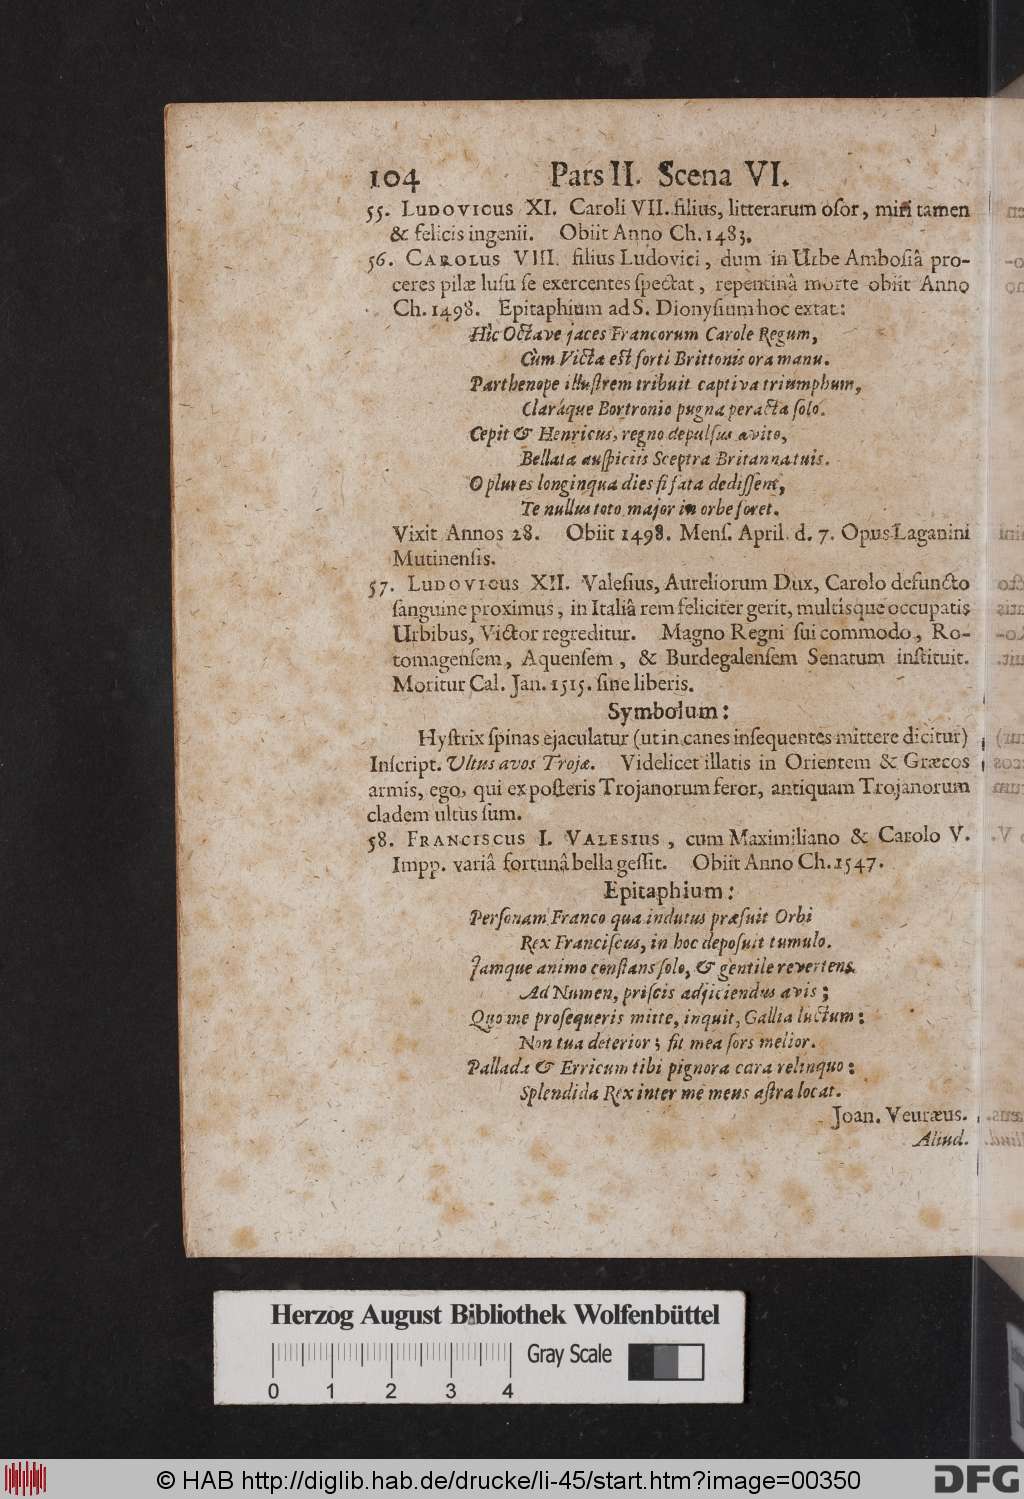 104 Pars II. Scena VI.
55. LUDOVICUS XI. Caroli VII. filius, litterarum osor, miri tamen
& felicis ingenii. Obiit Anno Ch. 1483.
56. CAROLUS VIII. filius Ludovici, dum in Urbe Ambosiâ pro-
ceres pilæ lusu se exercentes spectat, repentinâ morte obiit Anno
Ch. 1498. Epitaphium ad S. Dionysium hoc extat:
Hic Octave jaces Francorum Carole Regum,
Cùm Victa est forti Brittonis ora manu.
Parthenope illustrem tribuit captiva triumphum,
Claráque Bortronio pugna peracta solo.
Cepit & Henricus, regno depulsus avito,
Bellata auspiciis Sceptra Britanna tuis.
O plures longinqua dies si fata dedissent,
Te nullus toto major in orbe foret.
Vixit Annos 28. Obiit 1498. Mens. April. d. 7. Opus Laganini
Mutinensis.
57. LUDOVICUS XII. Valesius, Aureliorum Dux, Carolo defuncto
sanguine proximus, in Italiâ rem feliciter gerit, multisque occupatis
Urbibus, Victor regreditur. Magno Regni sui commodo, Ro-
tomagensem, Aquensem, & Burdegalensem Senatum instituit.
Moritur Cal. Jan. 1515. sine liberis.
Symbolum:
Hystrix spinas ejaculatur (ut in canes insequentes mittere dicitur)
Inscript. Ultus avos Trojæ. Videlicet illatis in Orientem & Græcos
armis, ego, qui ex posteris Trojanorum feror, antiquam Trojanorum
cladem ultus sum.
58. FRANCISCUS I. VALESIUS, cum Maximiliano & Carolo V.
Impp. variâ fortunâ bella gessit. Obiit Anno Ch. 1547.
Epitaphium:
Personam Franco qua indutus præfuit Orbi
Rex Franciscus, in hoc deposuit tumulo.
Jamque animo constans solo, & gentile revertens
Ad Numen, priscis adjiciendus avis;
Quo me prosequeris mitte, inquit, Gallia luctum:
Non tua deterior; fit mea sors melior.
Pallada & Erricum tibi pignora cara relinquo:
Splendida Rex inter me meus astra locat.
Joan. Veuræus.
Aliud.
Herzog August Bibliothek Wolfenbüttel
Gray Scale
0 1 2 3 4
© HAB http://diglib.hab.de/drucke/li-45/start.htm?image=00350
DFG